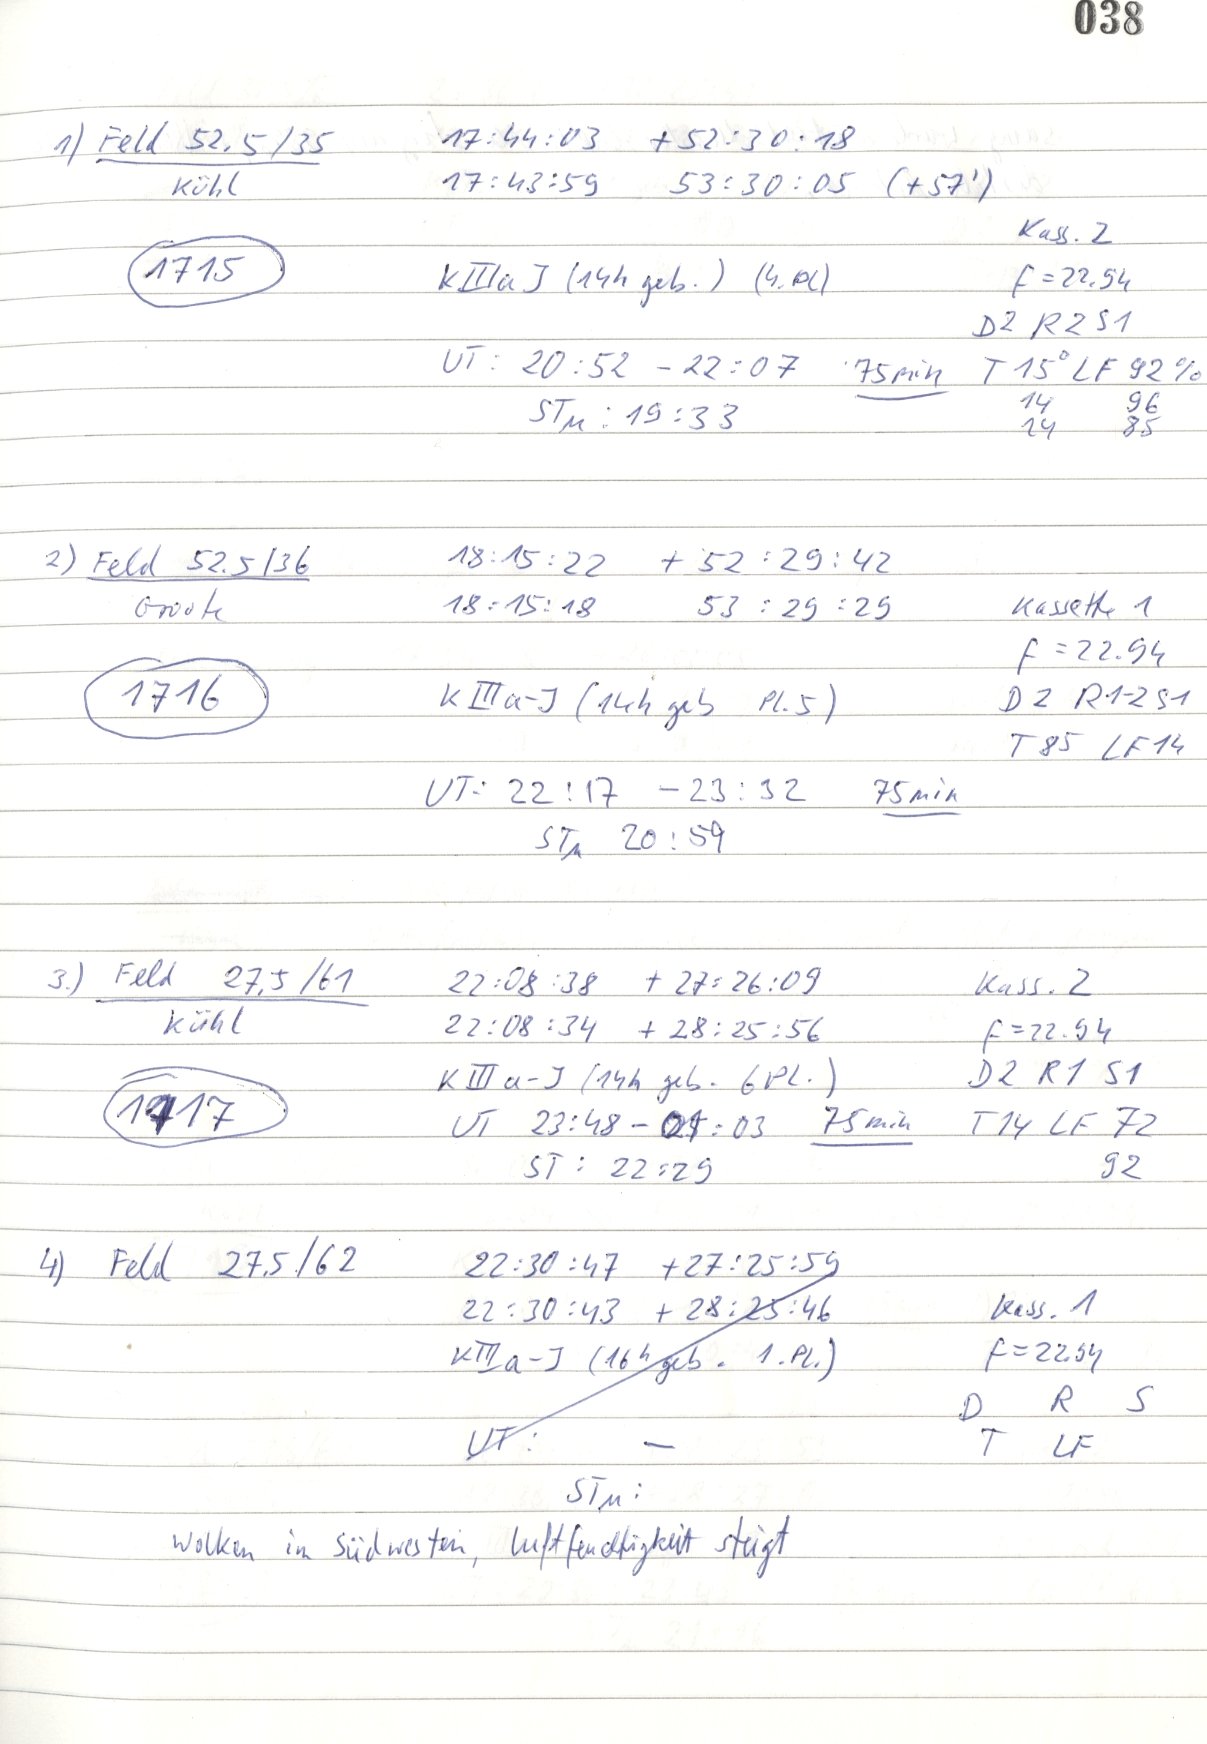 038
1) Feld 52.5/35 17:44:03 +52:30:18
Kühl 17:43:59 53:30:05 (+57')
Kass. 2
1715 KIIIaJ (14h geb.) (4. Pl) f=22.94
D2 R2 S1
UT: 20:52 - 22:07 75min T 15° LF 92%
STM: 19:33 14 96
14 85
2) Feld 52.5/36 18:15:22 + 52:29:42
Groote 18:15:18 53:29:29 Kassette 1
f=22.94
1716 KIIIa-J (14h geb Pl. 5) D2 R1-2 S1
T 85 LF 14
UT: 22:17 - 23:32 75min
STM 20:59
3.) Feld 27,5/61 22:08:38 + 27:26:09 Kass. 2
Kühl 22:08:34 + 28:25:56 f=22.94
KIIIa-J (14h geb. 6 Pl.) D2 R1 S1
1717 UT 23:48 - 01:03 75min T14 LF 72
ST: 22:29 92
4) Feld 27.5/62 22:30:47 +27:25:59
22:30:43 + 28:25:46 Kass. 1
KIIIa-J (16h geb. 1. Pl.) f=22.94
D R S
UT: - T LF
STM:
Wolken im Südwesten, Luftfeuchtigkeit steigt